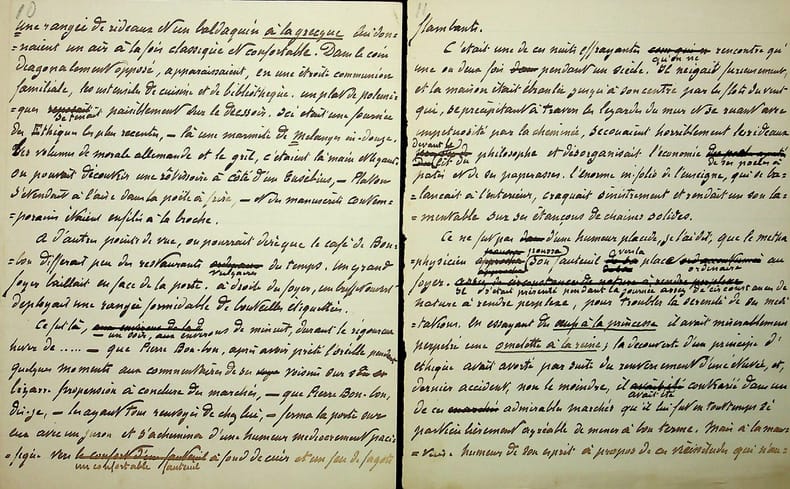 10
une rangée de rideaux et un baldaquin à la grecque lui don-
=naient un air à la fois classique et confortable. Dans le coin
diagonalement opposé, apparaissaient, en une étroite communion
familiale, les ustensiles de cuisine et de bibliothèque. un plat de polémi-
=ques reposait paisiblement sur le dressoir. ici était une fournée
se tenait
des Ethiques les plus récentes, — là une marmite de Mélanges in-douze.
Les volumes de morale allemande et le gril, c'étaient la main et le gant.
on pouvait découvrir une rôtissoire à côté d'un Eusébius, — Platon
s'étendait à l'aise dans la poêle à frire, — et des manuscrits contem-
=porains étaient enfilés à la broche.
A d'autres points de vue, on pourrait dire que le café de Bon-
=bon différait peu des restaurants ordinaires du temps. un grand
vulgaires
foyer baillait en face de la porte. à droite du foyer, un buffet ouvert
déployait une rangée formidable de bouteilles étiquetées.
Ce fut là, aux environs de la
un soir, aux environs de minuit, durant le rigoureux
hiver de ..... — que Pierre Bon-bon, après avoir prêté l'oreille pendant
quelques moments aux commentaires de ses voisins sur sa
bizarre propension à conclure des marchés, — que Pierre Bon-bon,
dis-je, — les ayant tous renvoyés de chez lui, — ferma la porte sur
eux avec un juron et s'achemina d'une humeur médiocrement paci-
=fique vers le confort d'un fauteuil à fond de cuir et un feu de fagots
un confortable fauteuil
11
flambants.
C'était une de ces nuits effrayantes rencontre qu'
qu'on ne
une ou deux fois dans pendant un siècle. Il neigeait furieusement,
et la maison était ébranlée jusqu'à son centre par les flots du vent
qui, se précipitant à travers les lézardes du mur et se ruant avec
impétuosité par la cheminée, secouaient horriblement les rideaux
devant le
du lit du philosophe et désorganisait l'économie
de ses poêles à
pâtés et de ses paperasses. l'énorme in-folio de l'enseigne, qui se ba-
=lançait à l'extérieur, craquait sinistrement et rendait un son la-
=mentable sur ses étançons de chênes solides.
Ce ne fut pas dans d'une humeur placide, je l'ai dit, que le méta-
poussa
physicien son fauteuil vers la place au
ordinaire
foyer.
de s'était présenté pendant la journée assez de circonstances de
nature à rendre perplexe, pour troubler la sérénité de ses médi-
=tations. En essayant des œufs à la princesse il avait misérablement
perpétré une omelette à la reine; la découverte d'un principe d'
éthique avait avorté par suite du renversement d'une étuvée, et,
dernier accident, non le moindre, il contrarié dans un
avait été
de ces marchés admirables marchés qu'il lui fut en tout temps si
particulièrement agréable de mener à bon terme. Mais à la mau-
=vaise humeur de son esprit à propos de ces vicissitudes qui n'au-